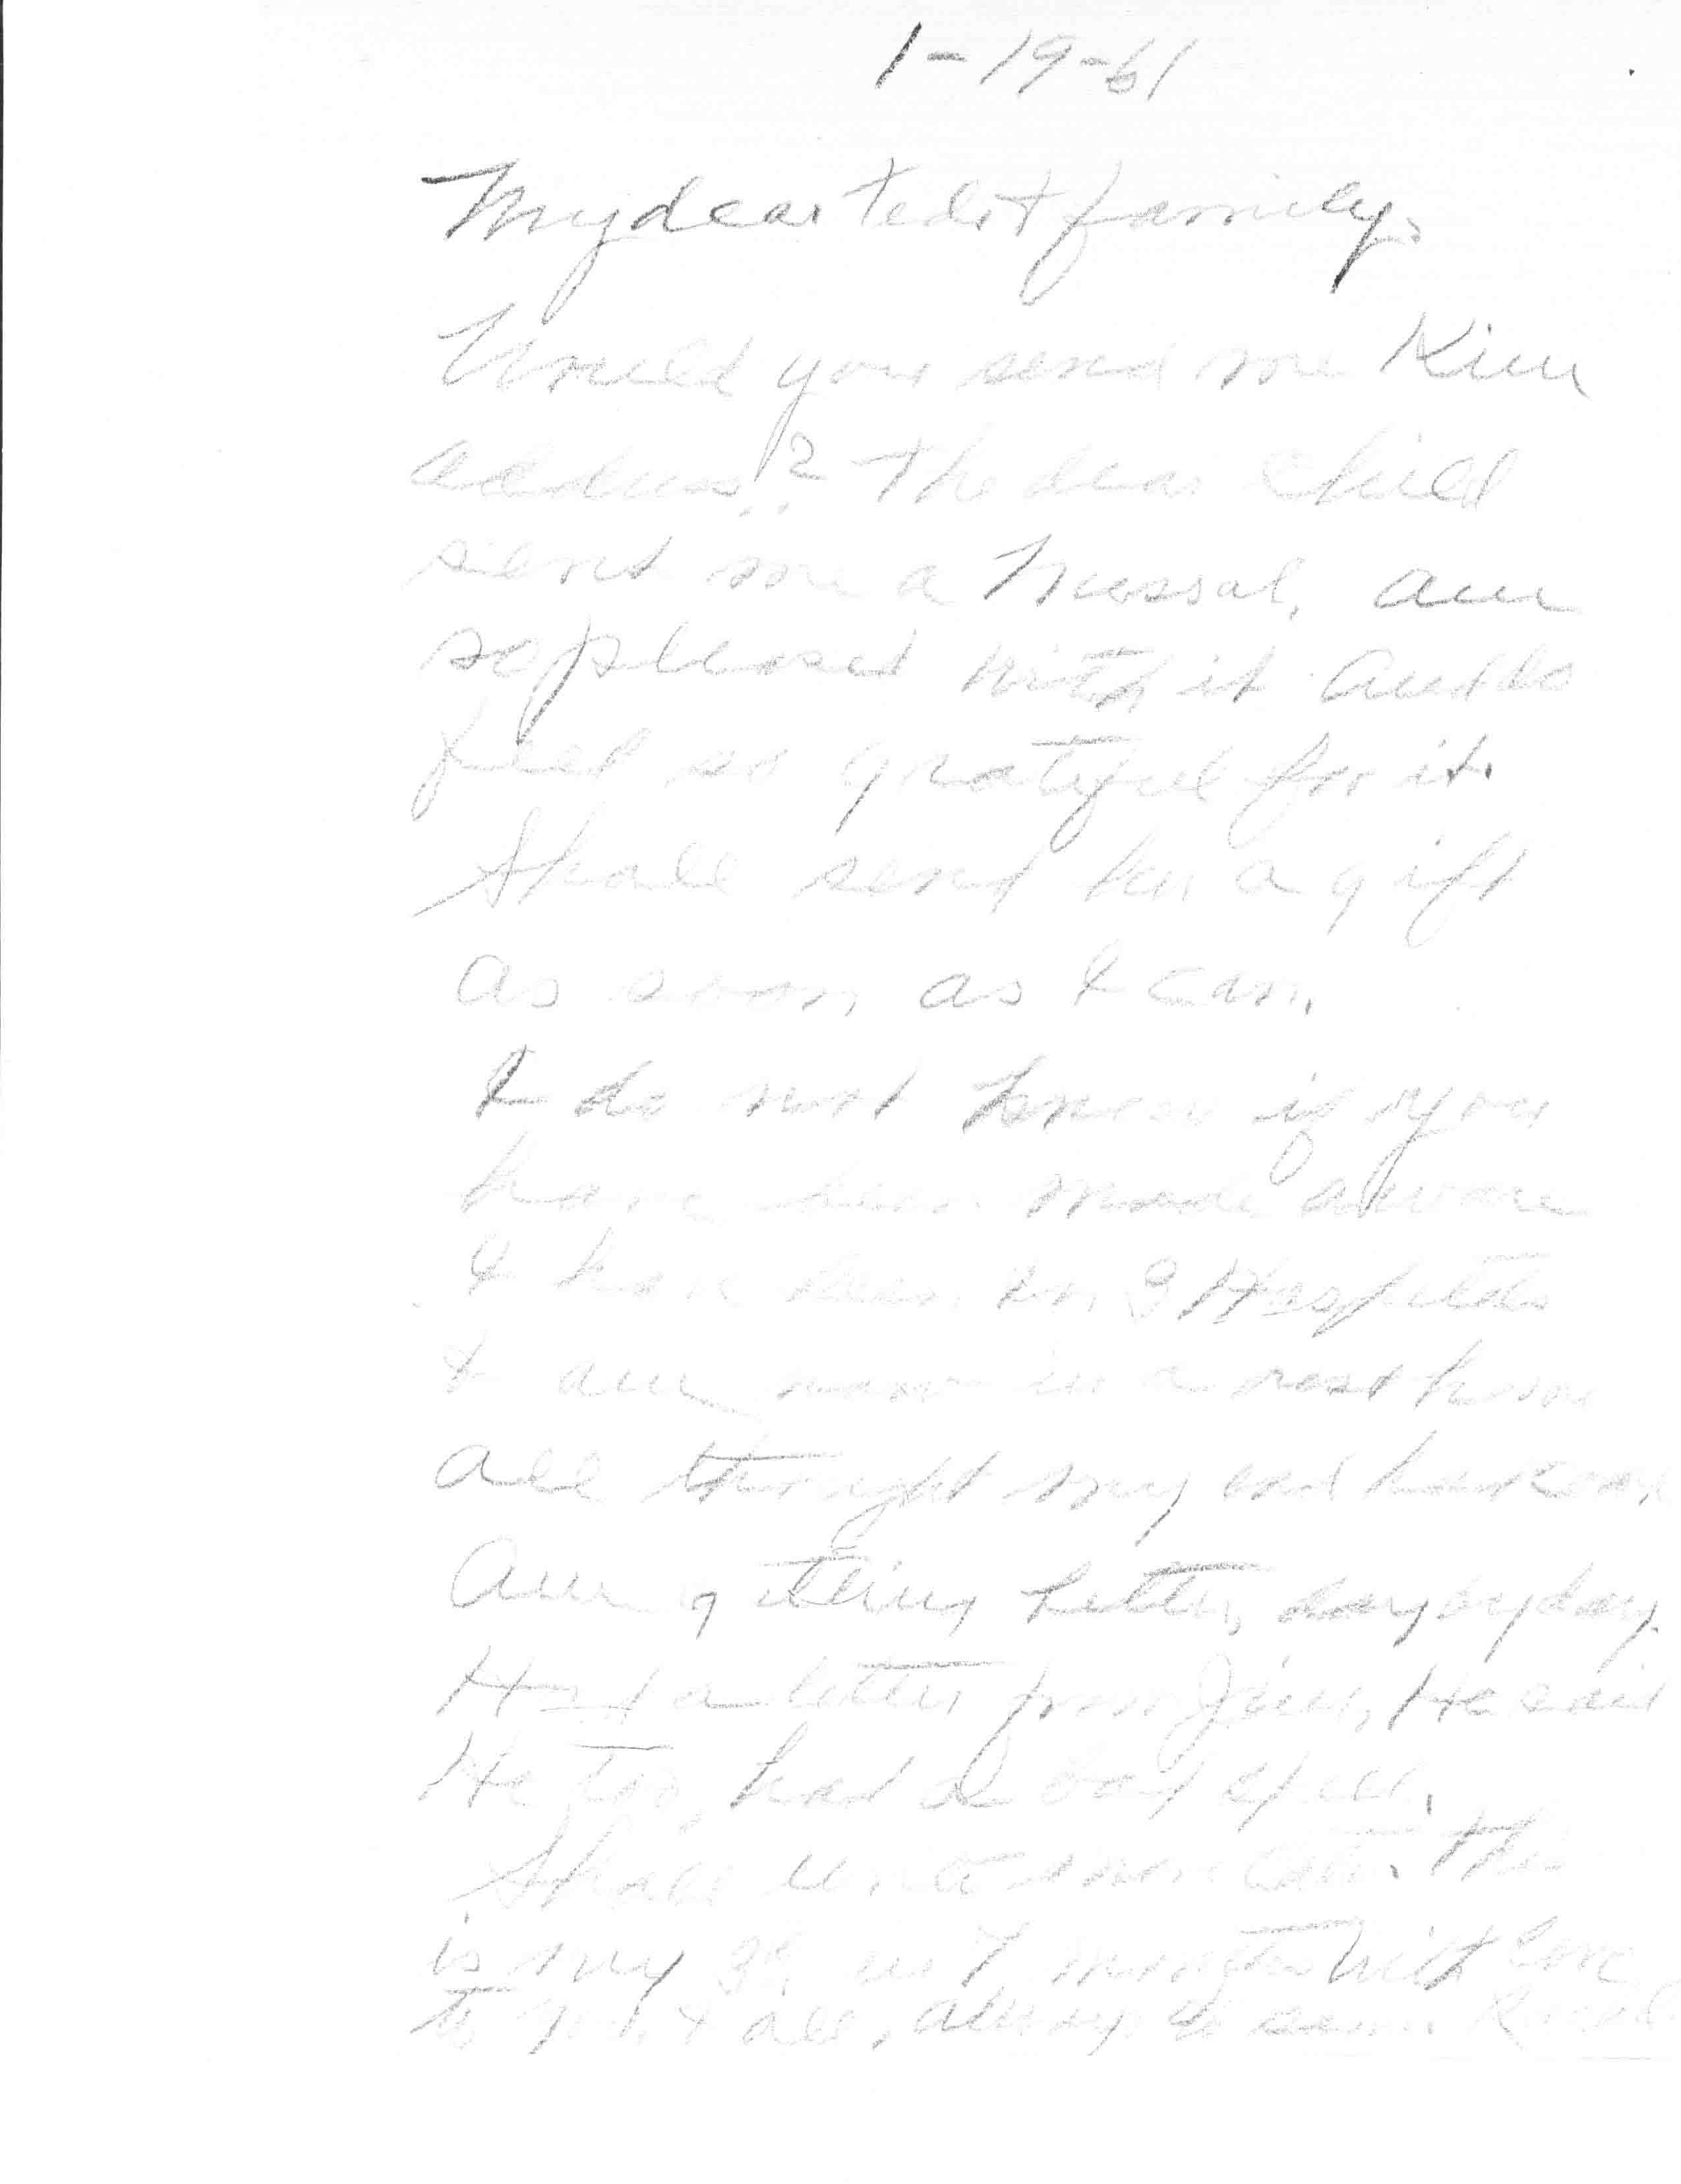 1-19-61
My dear Ted & family:
Would you send me Kim
address? The dear child
sent me a Missal, am
so pleased with it and do
feel so grateful for it.
Shall send her a gift
as soon as I can.
I do not know if you
have been made aware
I have been in 3 Hospitals
& am now in a rest home
all thought my end had come
Am getting better, day by day.
Had a letter from Jim, He said
He too, had a bad spell.
Shall write more later. This
is my in 7 months with love
to you & all, always the same.